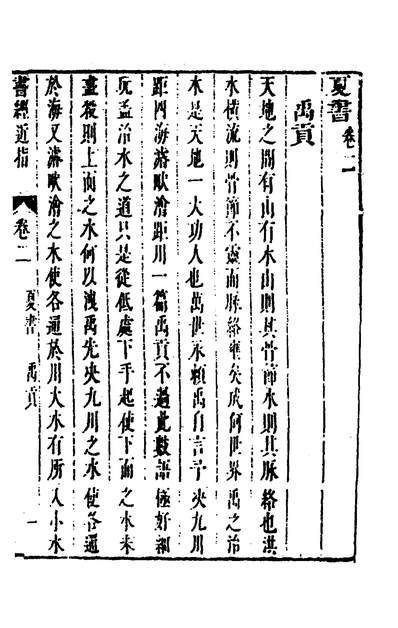 夏書卷二
禹貢
天地之間有山有水山則其骨節水則其脉絡也洪
水橫流則骨節不靈而脉絡壅矣成何世界禹之治
水是天地一大功人也萬世永頼禹自言予決九川
距四海濬畎澮距川一篇禹貢不過此數語極好細
玩孟治水之道只是從低處下手起使下面之水未
盡殺則上面之水何以洩禹先決九川之水使各通
於海又濬畎澮之水使各通於川大水有所入小水
書經近指
卷二
夏書
禹貢
一